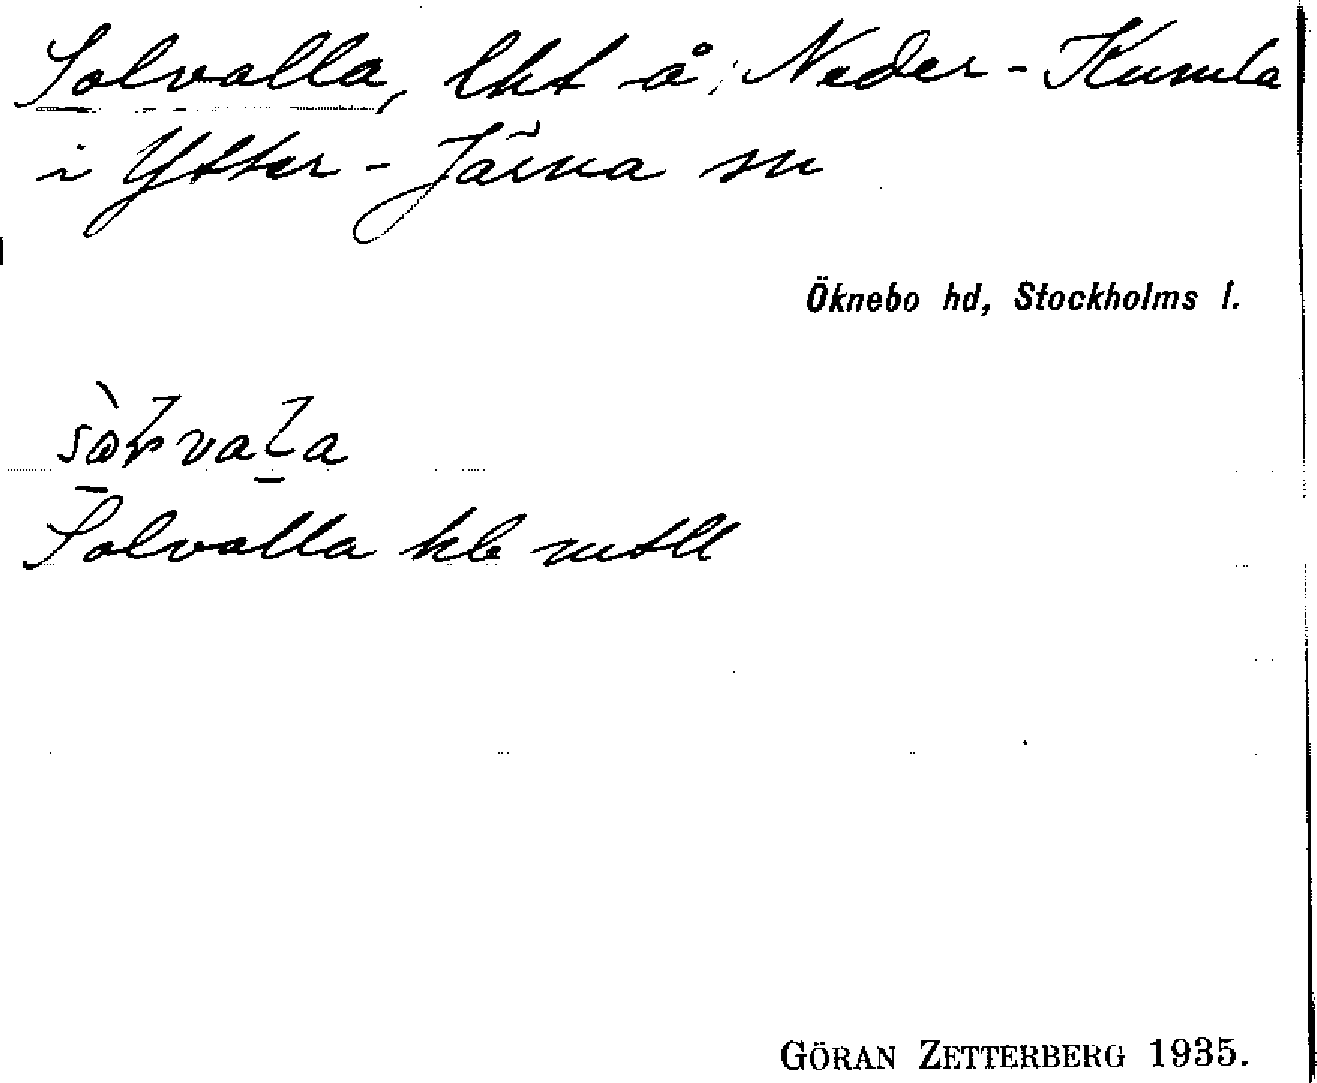 Solvalla, lht å Neder-Kumla
i Ytter-Järna sn
Öknebo hd, Stockholms l.
Solvalla kb mtll
GÖRAN ZETTERBERG 1935.